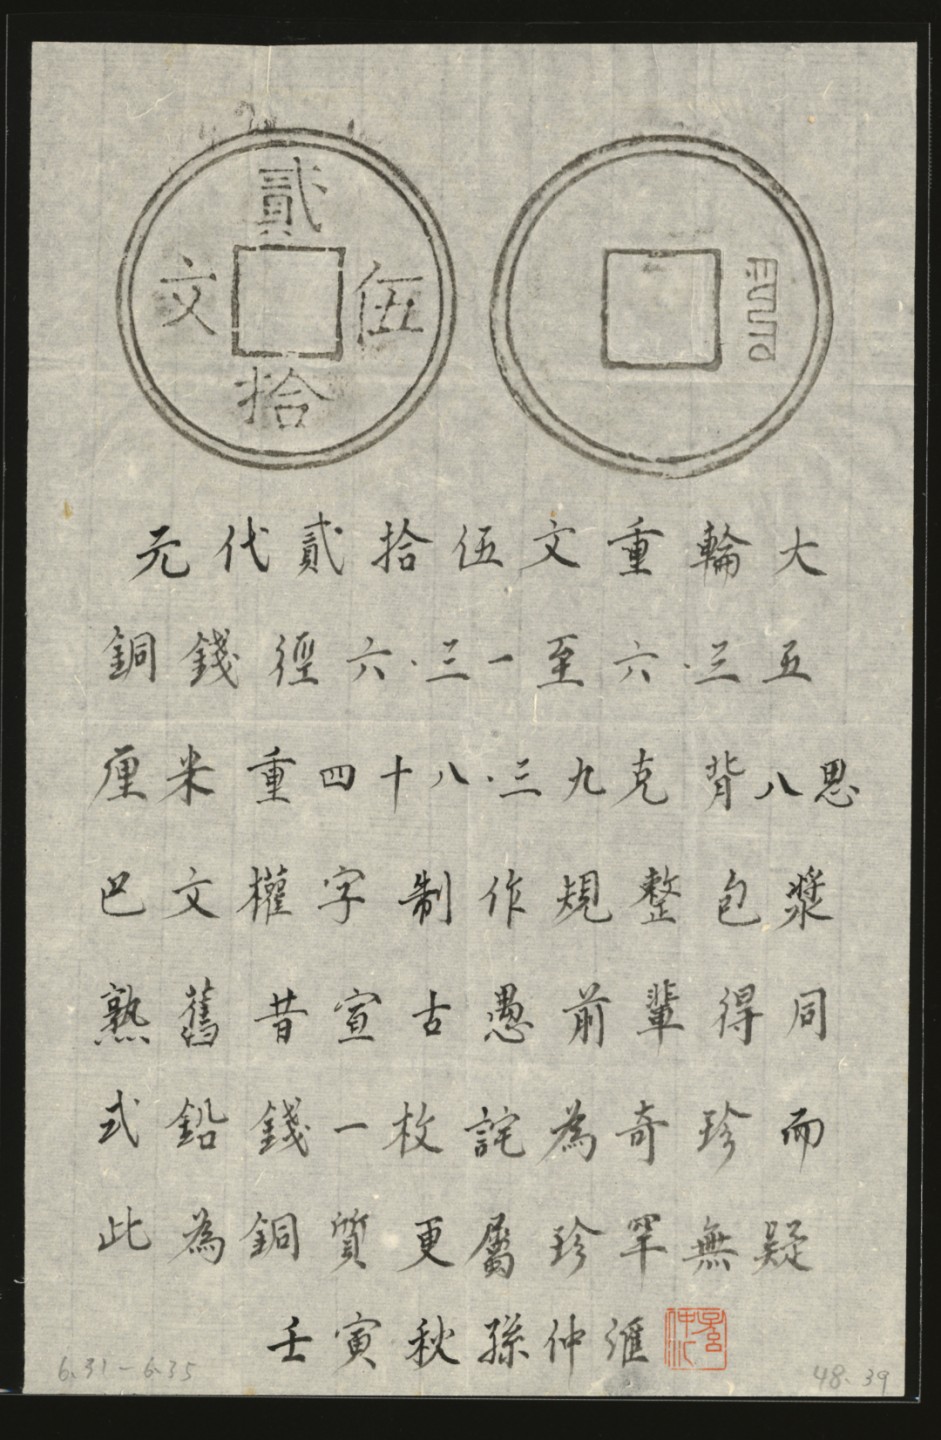 貳
伍
拾
文
元代貳拾伍文重輪大
銅錢徑六.三一至六.三五
厘米重四十八.三九克背八思
巴文權字制作規整包漿
熟舊昔宣古愚前輩得同
式鉛錢一枚詫為奇珍而
此為銅質更屬珍罕無疑
壬寅秋孫仲滙
6.31-6.35
48.39